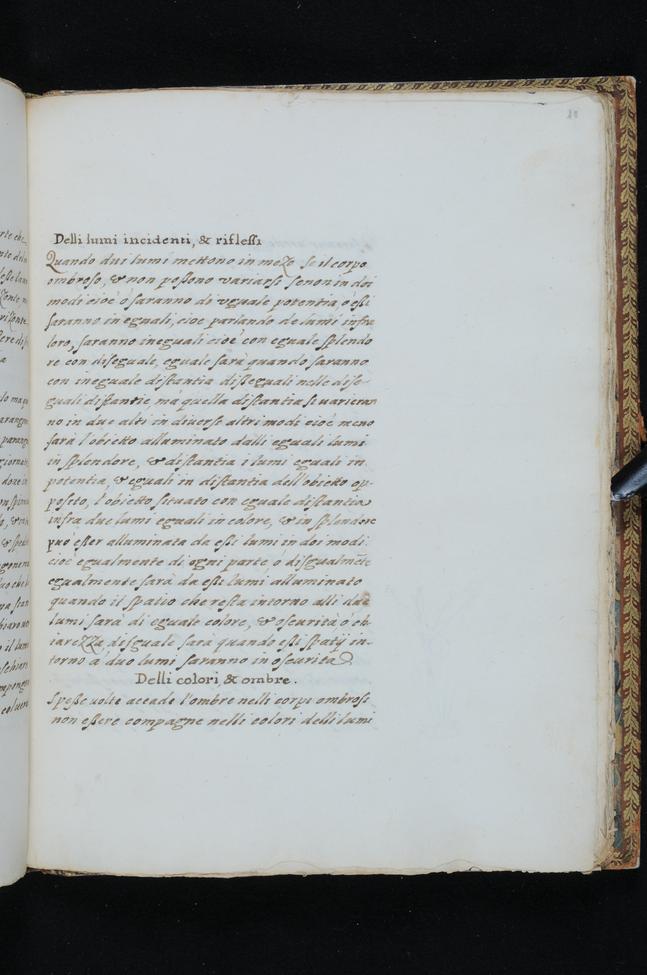 Delli lumi incidenti, & riflessi
Quando dui lumi mettono in meZo se il corpo
ombroso, & non possono variarsi se non in doi
modi cioè ò saranno di vguale potentia ò essi
saranno ineguali, cioè parlando de lumi infra
loro, saranno ineguali cioè con eguale splendo
re con diseguale, eguale sarà quando saranno
con ineguale distantia disseguali nelle dise-
guali distantie, ma quella distantia si varieran
no in due alti in diverse altri modi cioè meno
sarà l'obietto alluminato dalli eguali lumi
in splendore, & distantia i lumi eguali in
potentia, & eguali in distantia dell'obietto op-
posito, l'obietto situato con eguale distantia
infra due lumi eguali in colore, & in splendore
può esser alluminato da essi lumi in doi modi:
cioè egualmente di ogni parte, ò disgualmēte
egualmente sarà da essi lumi alluminato
quando il spatio che resta intorno alli due
lumi sarà di eguale colore, & oscurità ò ch
iareZZa, disguale sarà quando essi spatij in-
torno à duo lumi saranno in oscurità.
Delli colori, & ombre.
Spesse volte accade l'ombre nelli corpi ombrosi
non essere compagne nelli colori delli lumi